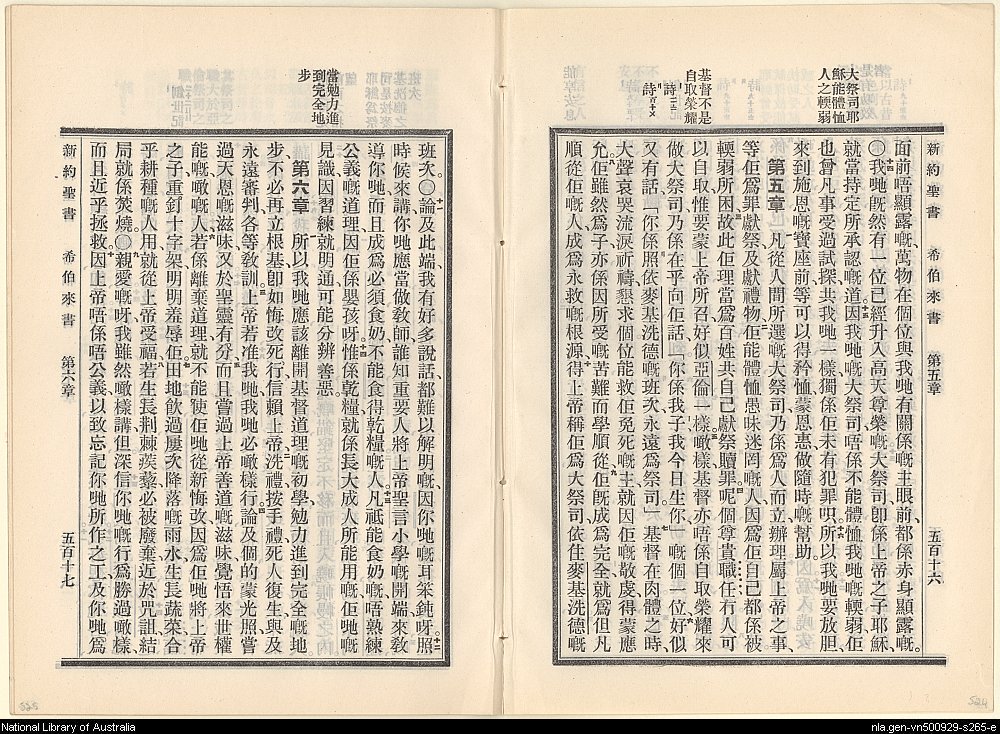 大祭司耶
穌能體恤
人之輭弱
詩
詩
基督不是
自取榮耀
面前唔顯露嘅、萬物在個位與我哋有關係嘅主眼前都係赤身顯露嘅。
○我哋既然有一位已經升入高天尊榮嘅大祭司、卽係上帝之子耶穌、
就當持定所承認嘅道、因我哋嘅大祭司唔係不能體恤我哋嘅輭弱、佢
也曾凡事受過試探共我哋一樣、獨係佢未有犯罪呮、所以我哋要放胆
來到施恩嘅寶座前等可以得矜恤蒙恩惠做隨時嘅幫助。
第五章 一凡從人間所選嘅大祭司乃係爲人而立、辦理屬上帝之事、
等佢爲罪獻祭及獻禮物、佢能體恤愚味迷罔嘅人、因爲佢自己都係被
輭弱所困、故此佢理當爲百姓共自己獻祭贖罪、呢個尊貴職任冇人可
以自取、惟要蒙上帝所召好似亞倫一樣、噉樣基督亦唔係自取榮耀來
做大祭司、乃係在乎向佢話、你係我子、我今日生你、嘅個一位、好似
又有話、你係照依麥基洗德嘅班次永遠爲祭司、基督在肉體之時、
大聲哀哭流淚祈禱懇求個位能救佢免死嘅主、就因佢嘅敬虔得蒙應
允、佢雖然爲子、亦係因所受嘅苦難而學順從、佢既成爲完全、就爲但凡
順從佢嘅人、成爲永救嘅根源、得上帝稱佢爲大祭司、依住麥基洗德嘅
新約聖書 希伯來書 第五章 五百十六
當勉力進
到完全地
步
班次。○十一論及此端我有好多說話都難以解明嘅、因你哋嘅耳笨鈍呀、十二照
時候來講你哋應當做敎師、誰知重要人將上帝聖言小學嘅開端來敎
導你哋、而且成爲必須食奶不能食得乾糧嘅人、十三凡祗能食奶嘅、唔熟練
公義嘅道理、因佢係嬰孩呀、十四惟係乾糧就係長大成人所能用嘅、佢哋嘅
見識因習練就明通可能分辨善惡。
第六章 所以我哋應該離開基督道理嘅初學、勉力進到完全嘅地
步、不必再立根基、卽如悔改死行、信賴上帝、洗禮、按手禮、死人復生、與及
永遠審判、各等敎訓、上帝若准我哋、我哋必噉樣行、論及個的蒙光照、嘗
過天恩嘅滋味、又於聖靈有分、而且嘗過上帝善道嘅滋味、覺悟來世權
能嘅嗽人、若係離棄道理、就不能使佢哋從新悔改、因爲佢哋將上帝
之子重釘十字架明明羞辱佢、田地飲過屢次降落嘅雨水、生長蔬菜合
乎耕種嘅人用、就從上帝受福、若生長荆棘蒺藜、必被廢棄近於咒詛、結
局就係焚燒。○親愛嘅呀、我雖然噉樣講、但深信你哋嘅行爲勝過噉樣、
而且近乎拯救、因上帝唔係唔公義、以致忘記你哋所作之工、及你哋爲
新約聖書 希伯來書 第六章 五百十七
525
524
National Library of Australia
nla.gen-vn500929-s265-e